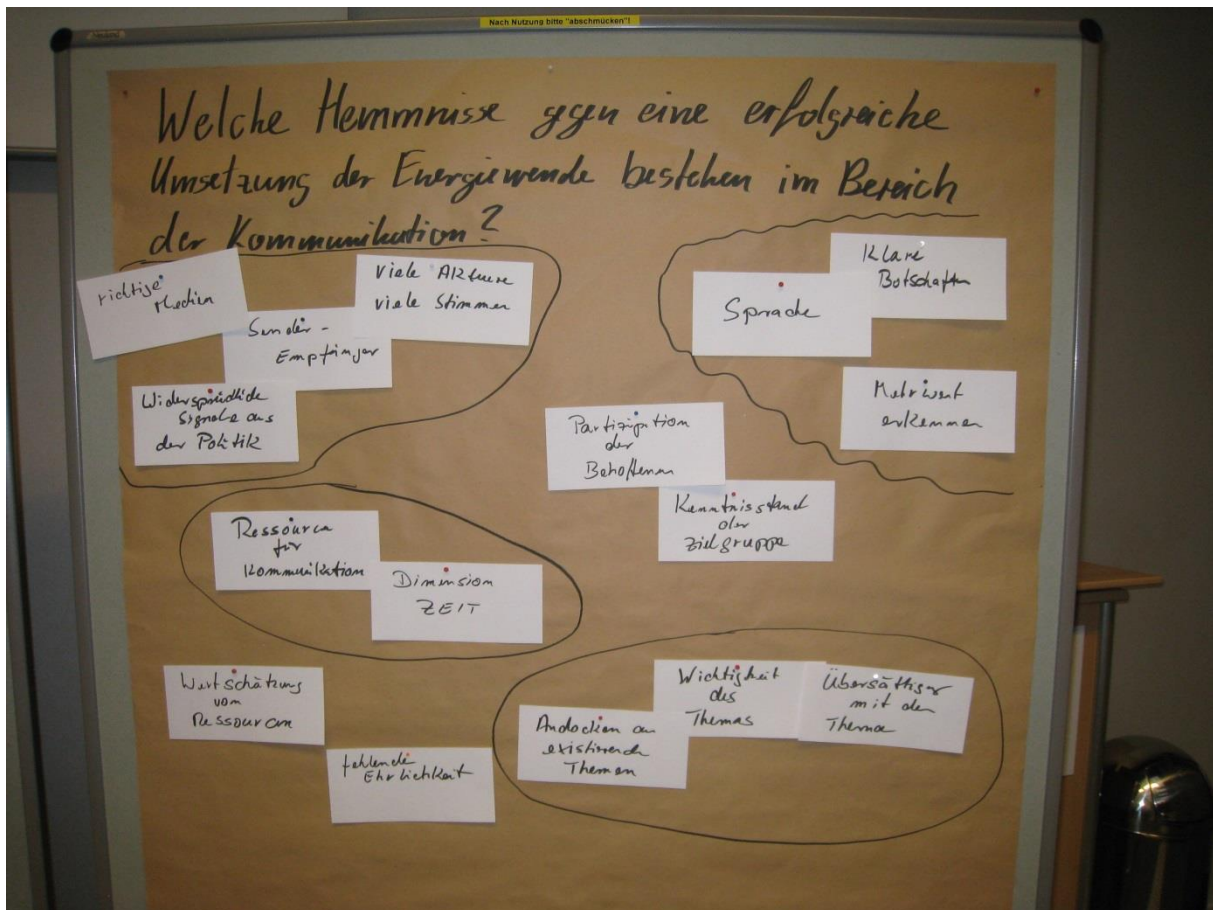 Nach Nutzung bitte "abschmücken"!
Neuland
Welche Hemmnisse gegen eine erfolgreiche
Umsetzung der Energiewende bestehen im Bereich
der Kommunikation?
richtige
Medien
Sender-
Empfänger
viele Akteure
viele Stimmen
Widersprüchliche
Signale aus
der Politik
Sprache
Klare
Botschaften
Mehrwert
erkennen
Partizipation
der
Betroffenen
Kenntnisstand
der
Zielgruppe
Ressourcen
für
Kommunikation
Dimension
ZEIT
Wertschätzung
von
Ressourcen
fehlende
Ehrlichkeit
Andocken an
existierende
Themen
Wichtigkeit
des
Themas
mit dem
Thema